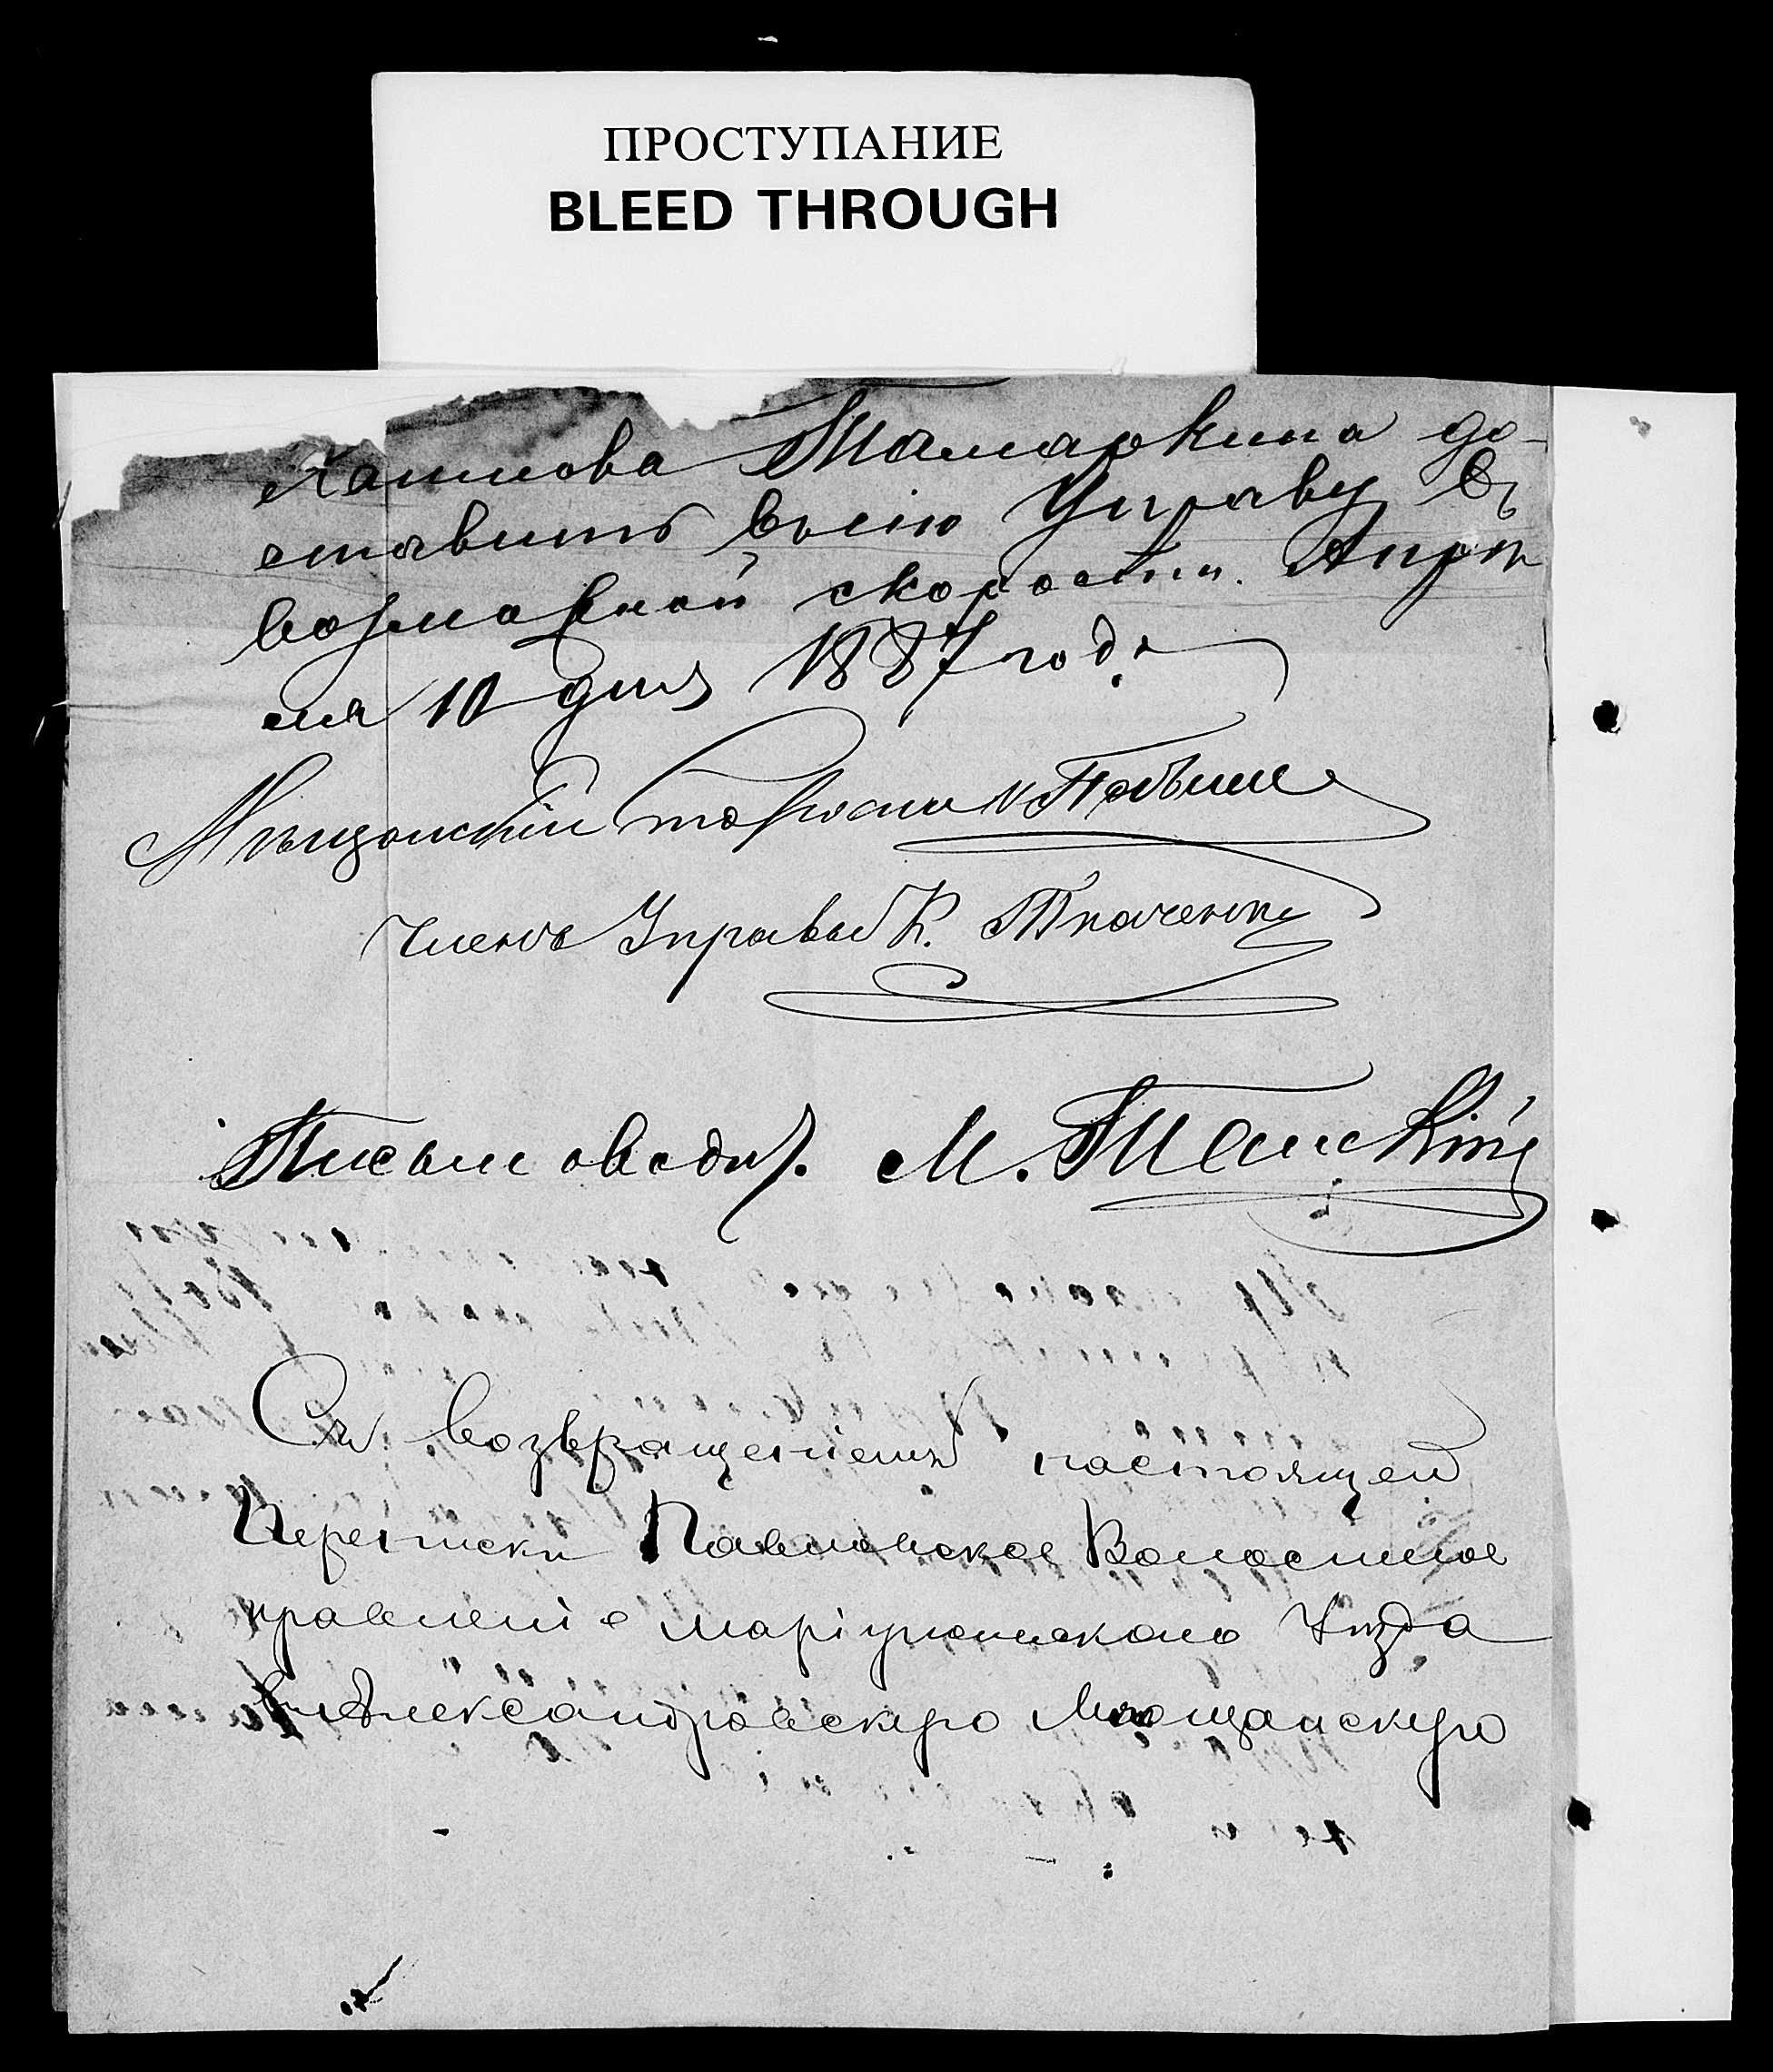 ПРОСТУПАНИЕ
BLEED THROUGH
Тамаркина до-
ставить въ сію Управу въ
возможной скорости. Апрѣ
ля 10 дня 1887 года
Мѣщанскій
Членъ Управы К. Ткаченко
Письмоводит. М.
Съ возвращеніемъ настоящей
переписки Павловское Волостное
правленіе Маріупольскаго Уѣзда
въ Александровскую Мѣщанскую